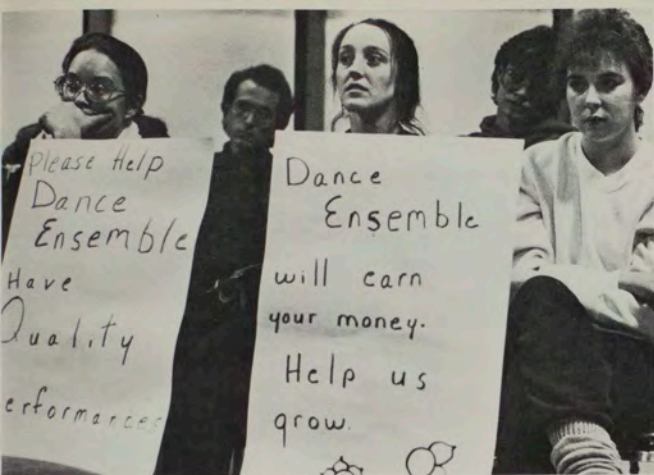 Please Help
Dance
Ensemble
Have
Quality
erformances
Dance
Ensemble
will earn
your money.
Help us
grow.